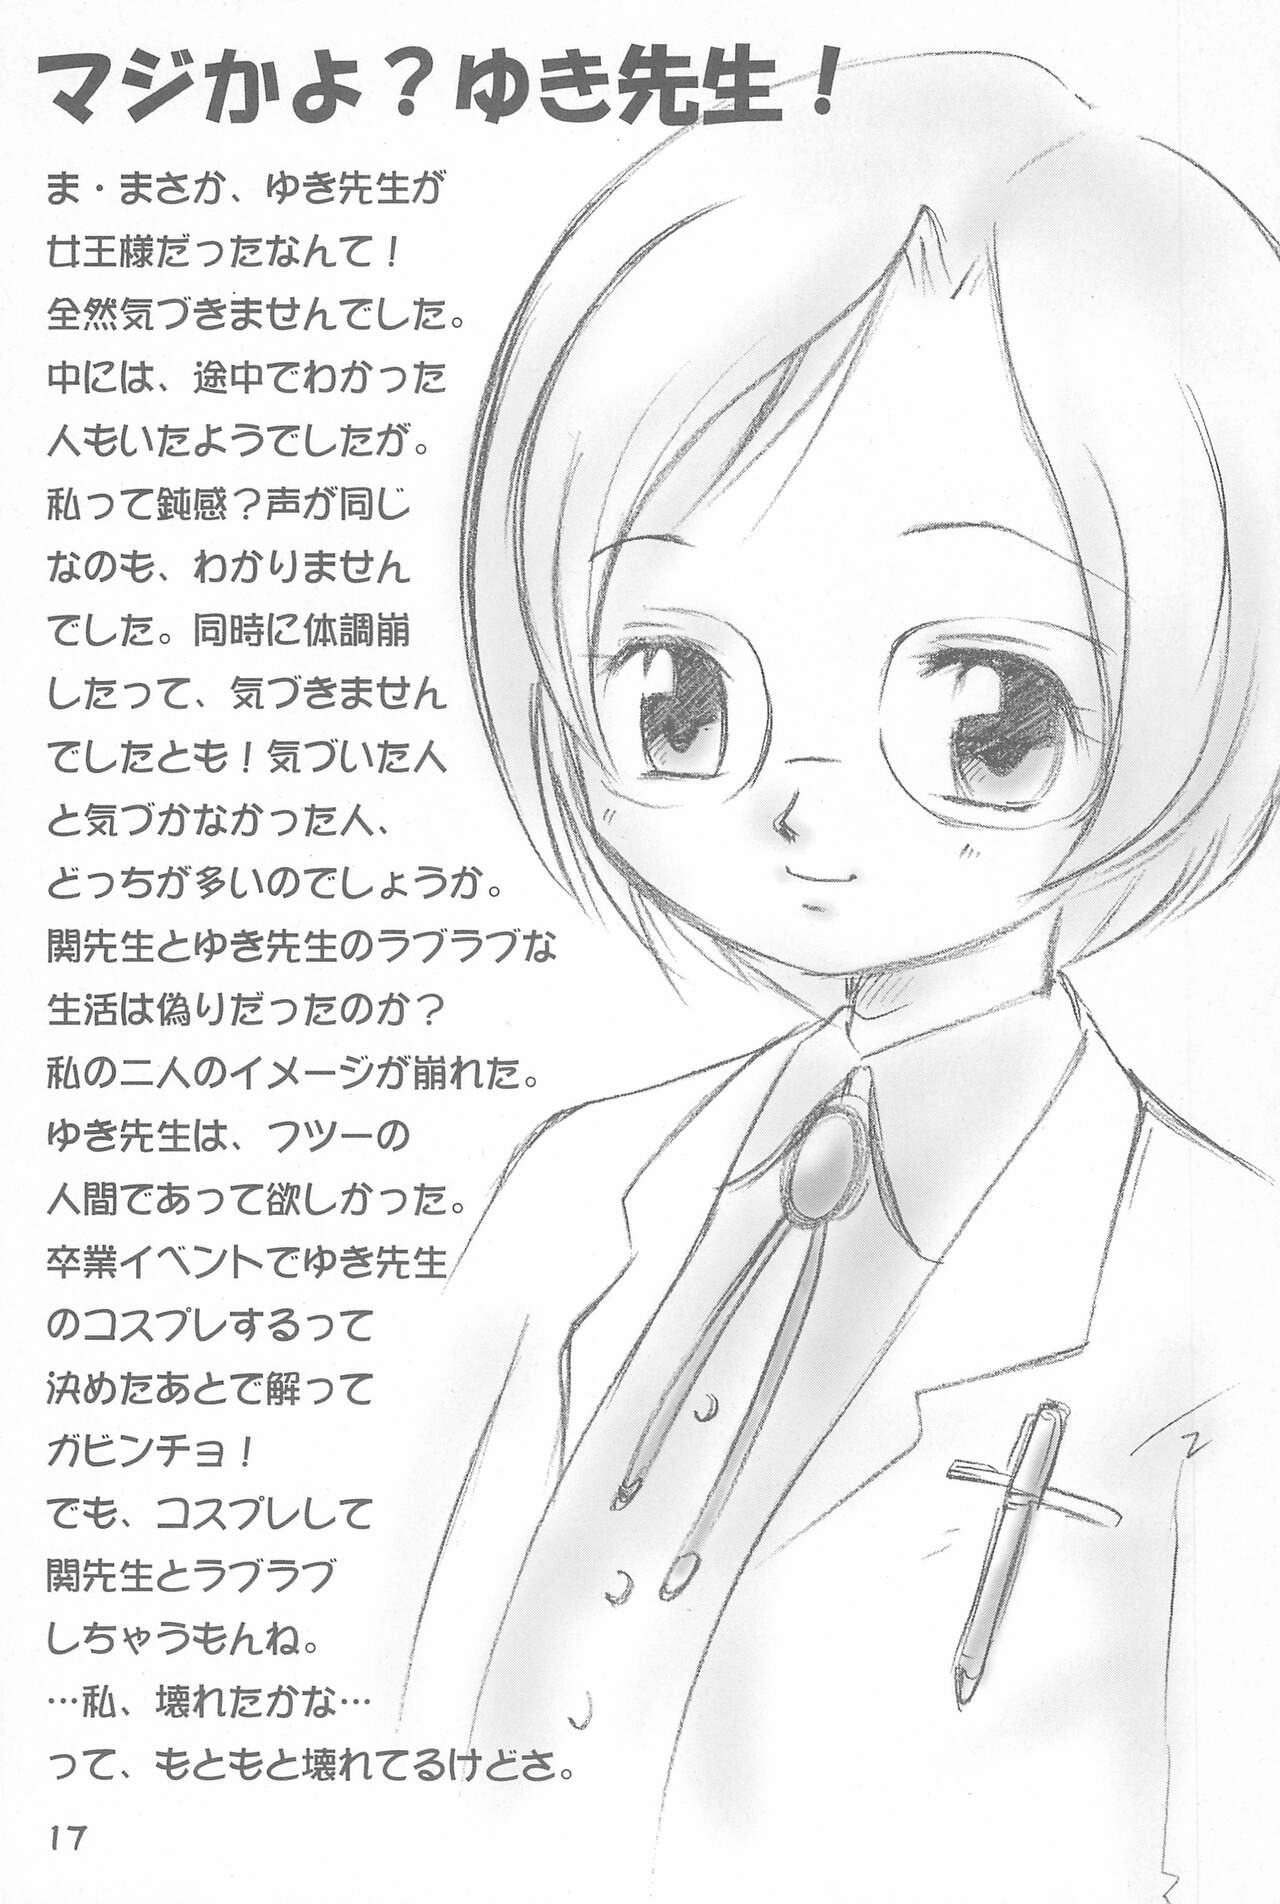 マジかよ？ゆき先生！
ま・まさか、ゆき先生が
女王様だったなんて！
全然気づきませんでした。
中には、途中でわかった
人もいたようでしたが。
私って鈍感？声が同じ
なのも、わかりません
でした。同時に体調崩
したって、気づきません
でしたとも！気づいた人
と気づかなかった人、
どっちが多いのでしょうか。
関先生とゆき先生のラブラブな
生活は偽りだったのか？
私の二人のイメージが崩れた。
ゆき先生は、フツーの
人間であって欲しかった。
卒業イベントでゆき先生
のコスプレするって
決めたあとで解って
ガビンチョ！
でも、コスプレして
関先生とラブラブ
しちゃうもんね。
…私、壊れたかな…
って、もともと壊れてるけどさ。
17